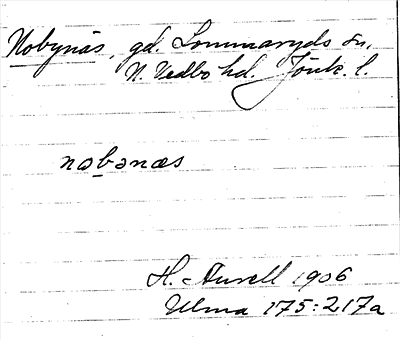 Nobynäs, gd. Lommaryds sn,
N. Vedbo hd. Jönk. l.
nobənæs
H. Aurell 1906
Ulma 175:217a